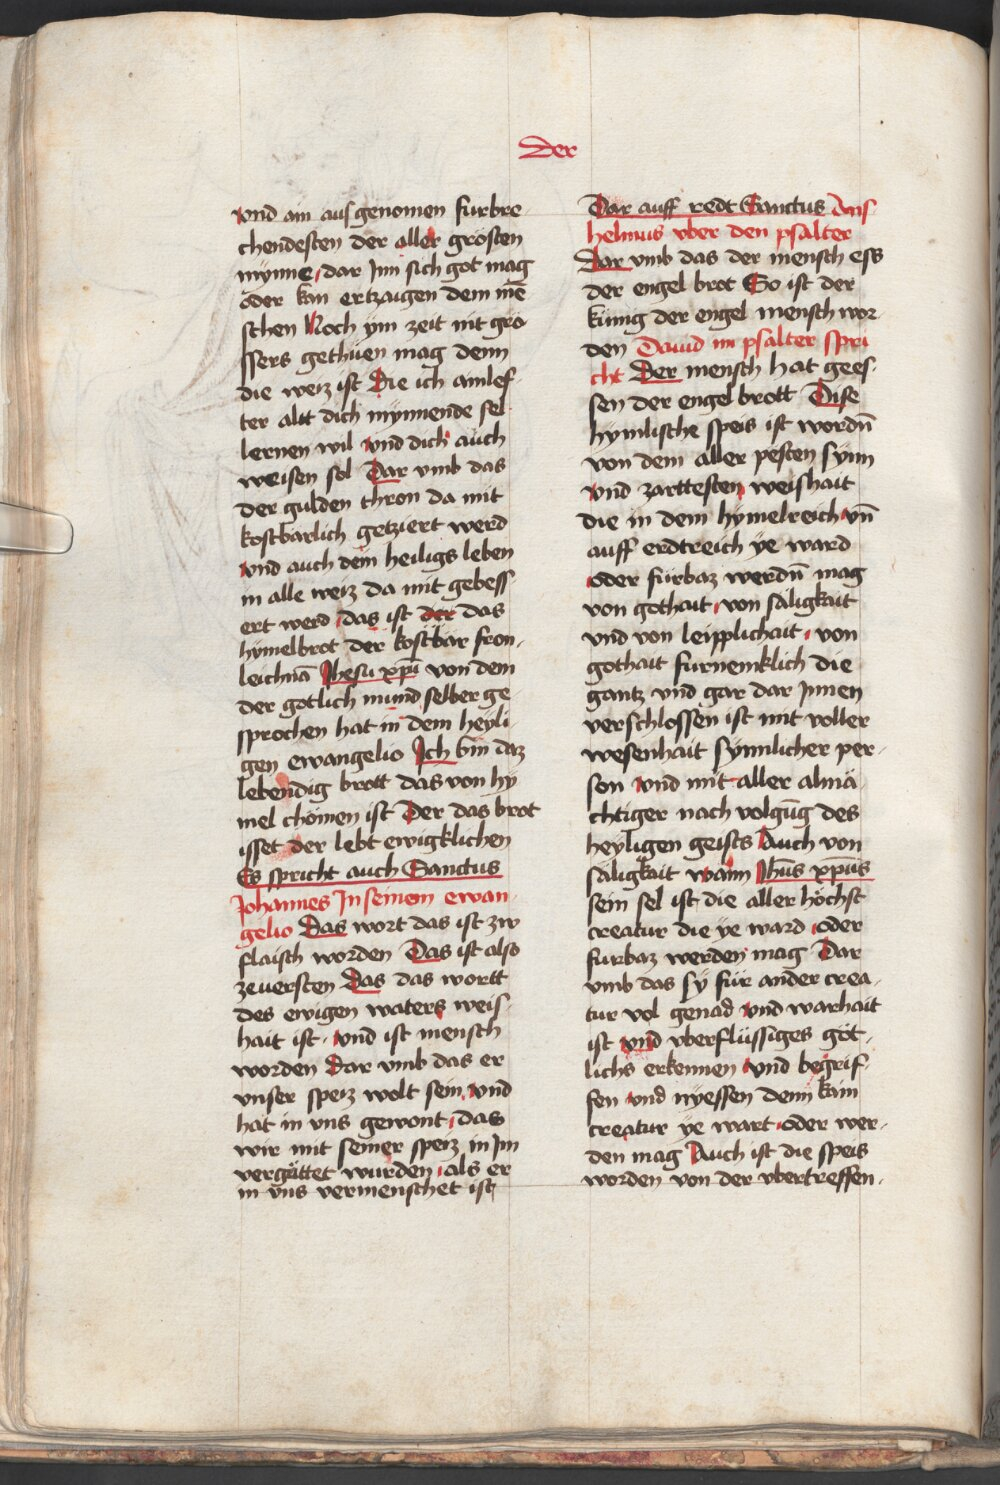 Der
vnd ain ausgenomen furbre-
chendesten der aller grösten
mynne, dar jnn sich got mag
oder kan ertzaigen dem mē
schen Noch ym zeit nit grö
ssers gethuen mag denn
die weiz ist Die ich ainlef-
ter altt dich mynnende sel
lernen wil vnd dich auch
weisen sol Dar vmb das
der gulden thron da mit
kostbarlich getziert werd
vnd auch dem heiligs leben
in alle weiz da mit gebess
ert werd, das ist der das
hymelbrot der kostbar fron-
leichnā Jhesu xp̄i von dem
der gotlich mund selber ge
sprochen hat in dem heyli-
gen ewangelio Ich bin daz
lebendig brott das von hy
mel chömen ist Der das brot
isset der lebt ewigklichen
Es spricht auch Sanctus
Johannes In seinem ewan
gelio Das wort das ist zw
flaisch worden Das ist also
zeuersten Das das wortt
des ewigen waters weis-
hait ist, vnd ist mensch
worden Dar vmb das er
vnser speiz wolt sein, vnd
hat in vns gewont, das
wir mit seiner speiz in jm
vergöttet wurden, als er
in vns vermenschet ist
Dar auff redt Sanctus Ans-
helmus vber den psalter
Dar vmb das der mensch ess
der engel brot So ist der
künig der engel mensch wor-
den Dauid im psalter spri
cht Der mensch hat gees-
sen der engel brott Dise
hymlische speis ist wordn̄
von dem aller pesten synn
vnd zarttesten weishait
die in dem hymelreich vn̄
auff erdtreich ye ward
oder fürbaz werdn̄ mag
von gothait, von säligkait
vnd von leipplichait, von
gothait furnemklich die
gantz vnd gar dar jnnen
verschlossen ist mit voller
wesenhait synnlicher per-
son vnd mit aller almä
chtiger nach volgūg des
heyligen geists Auch von
säligkait wann Jhūs xp̄us
sein sel ist die aller höchst
creatur die ye ward, oder
furbaz werden mag Dar
vmb das sy für ander crea-
tur vol genad vnd warhait
ist vnd vberflüssiges göt-
lichs erkennen vnd begrif-
fen vnd nyessen denn kain
creatur ye wart, oder wer-
den mag Auch ist die speis
worden von der vbertreffen-